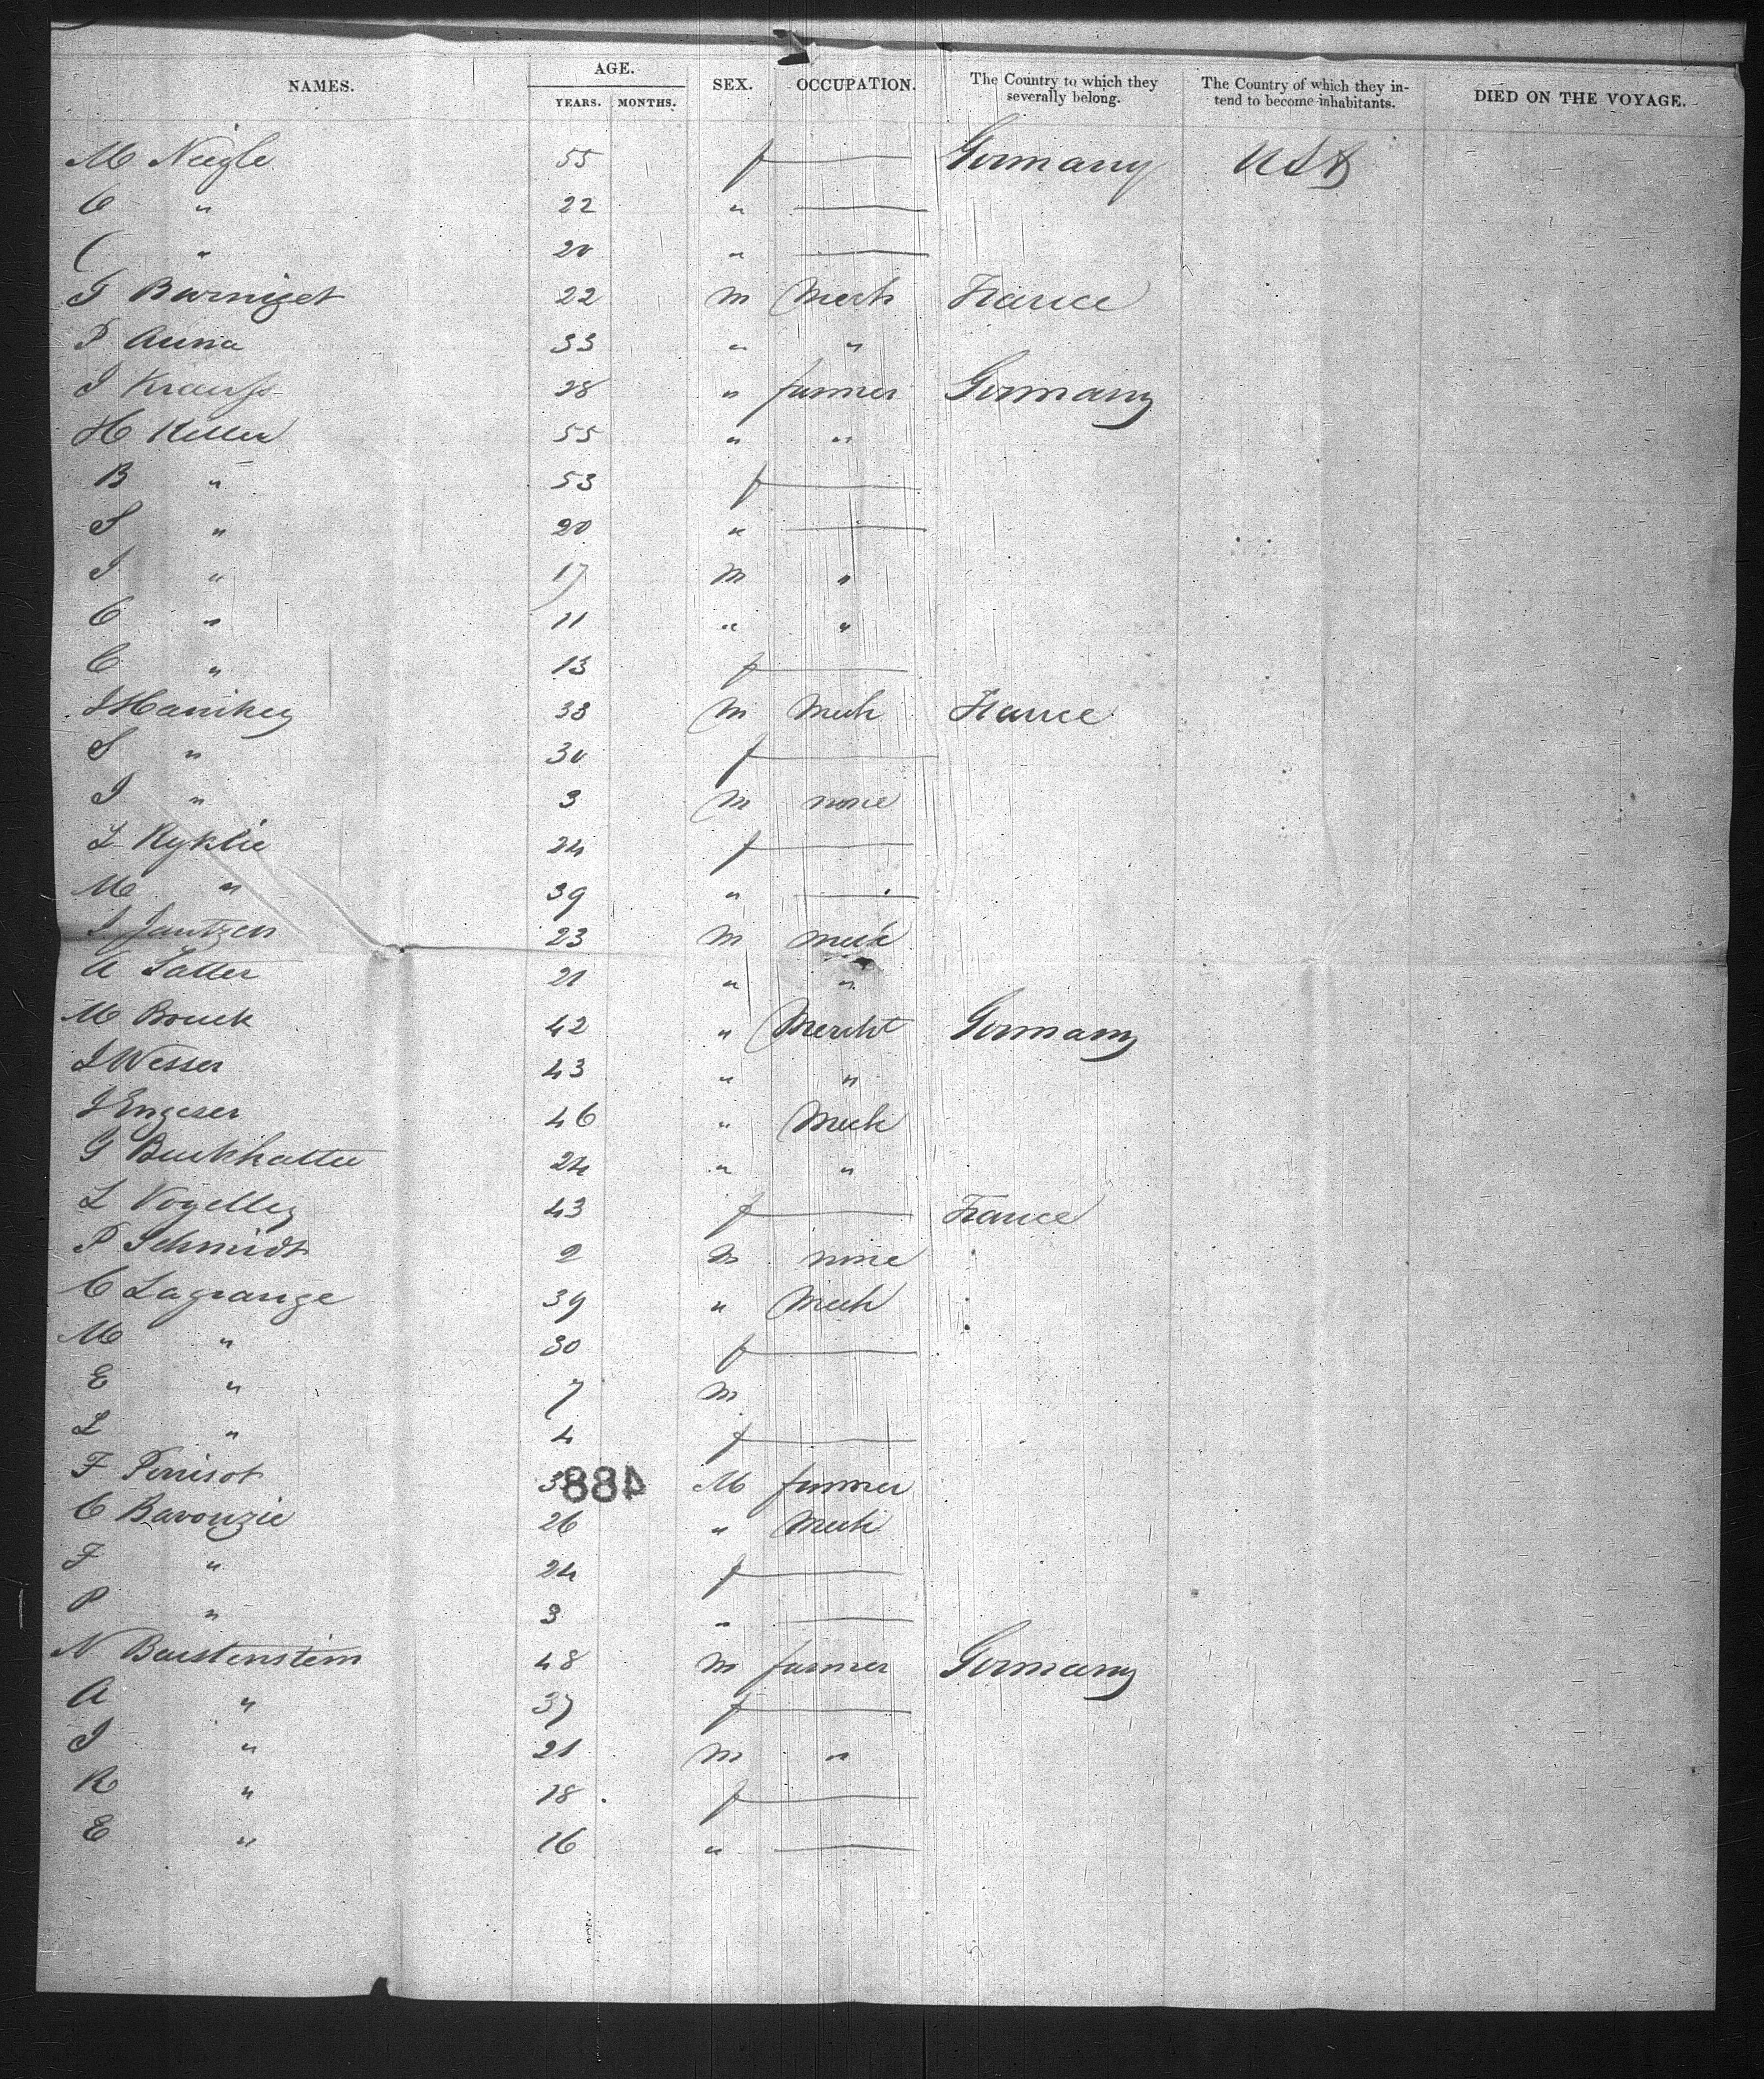 NAMES. AGE. SEX. OCCUPATION. The Country to which they severally belong. The Country of which they in- tend to become inhabitants. DIED ON THE VOYAGE.
YEARS. MONTHS.
M Neigle 55 f Germany USA
C " 22 "
C " 20 "
G 22 m Mech France
P Anna 33 " "
J Krauss 28 " farmer Germany
H Keller 55 " "
B " 53 f
S " 20 "
J " 17 m "
C " 11 " "
C " 13 f
J Hanikey 33 m Mech France
S " 30 f
J " 3 m none
L Ryklie 24 f
M " 39 "
J Jantzen 23 m mech
A 21 " "
M Brouk 42 " Mercht Germany
J Wesser 43 " "
J Engeser 46 " Mech
G Burkhatter 24 " "
L Vogelley 43 f France
P Schmidt 2 m none
C Lagrange 39 " Mech
M " 30 f
E " 7 m
L " 4 f
F Perrisot 3 M farmer
488
C Bavouzie 26 " Mech
F " 24 f
P " 3 "
N Baustenstein 48 m farmer Germany
A " 37 f
J " 21 m "
R " 18 f
E " 16 "